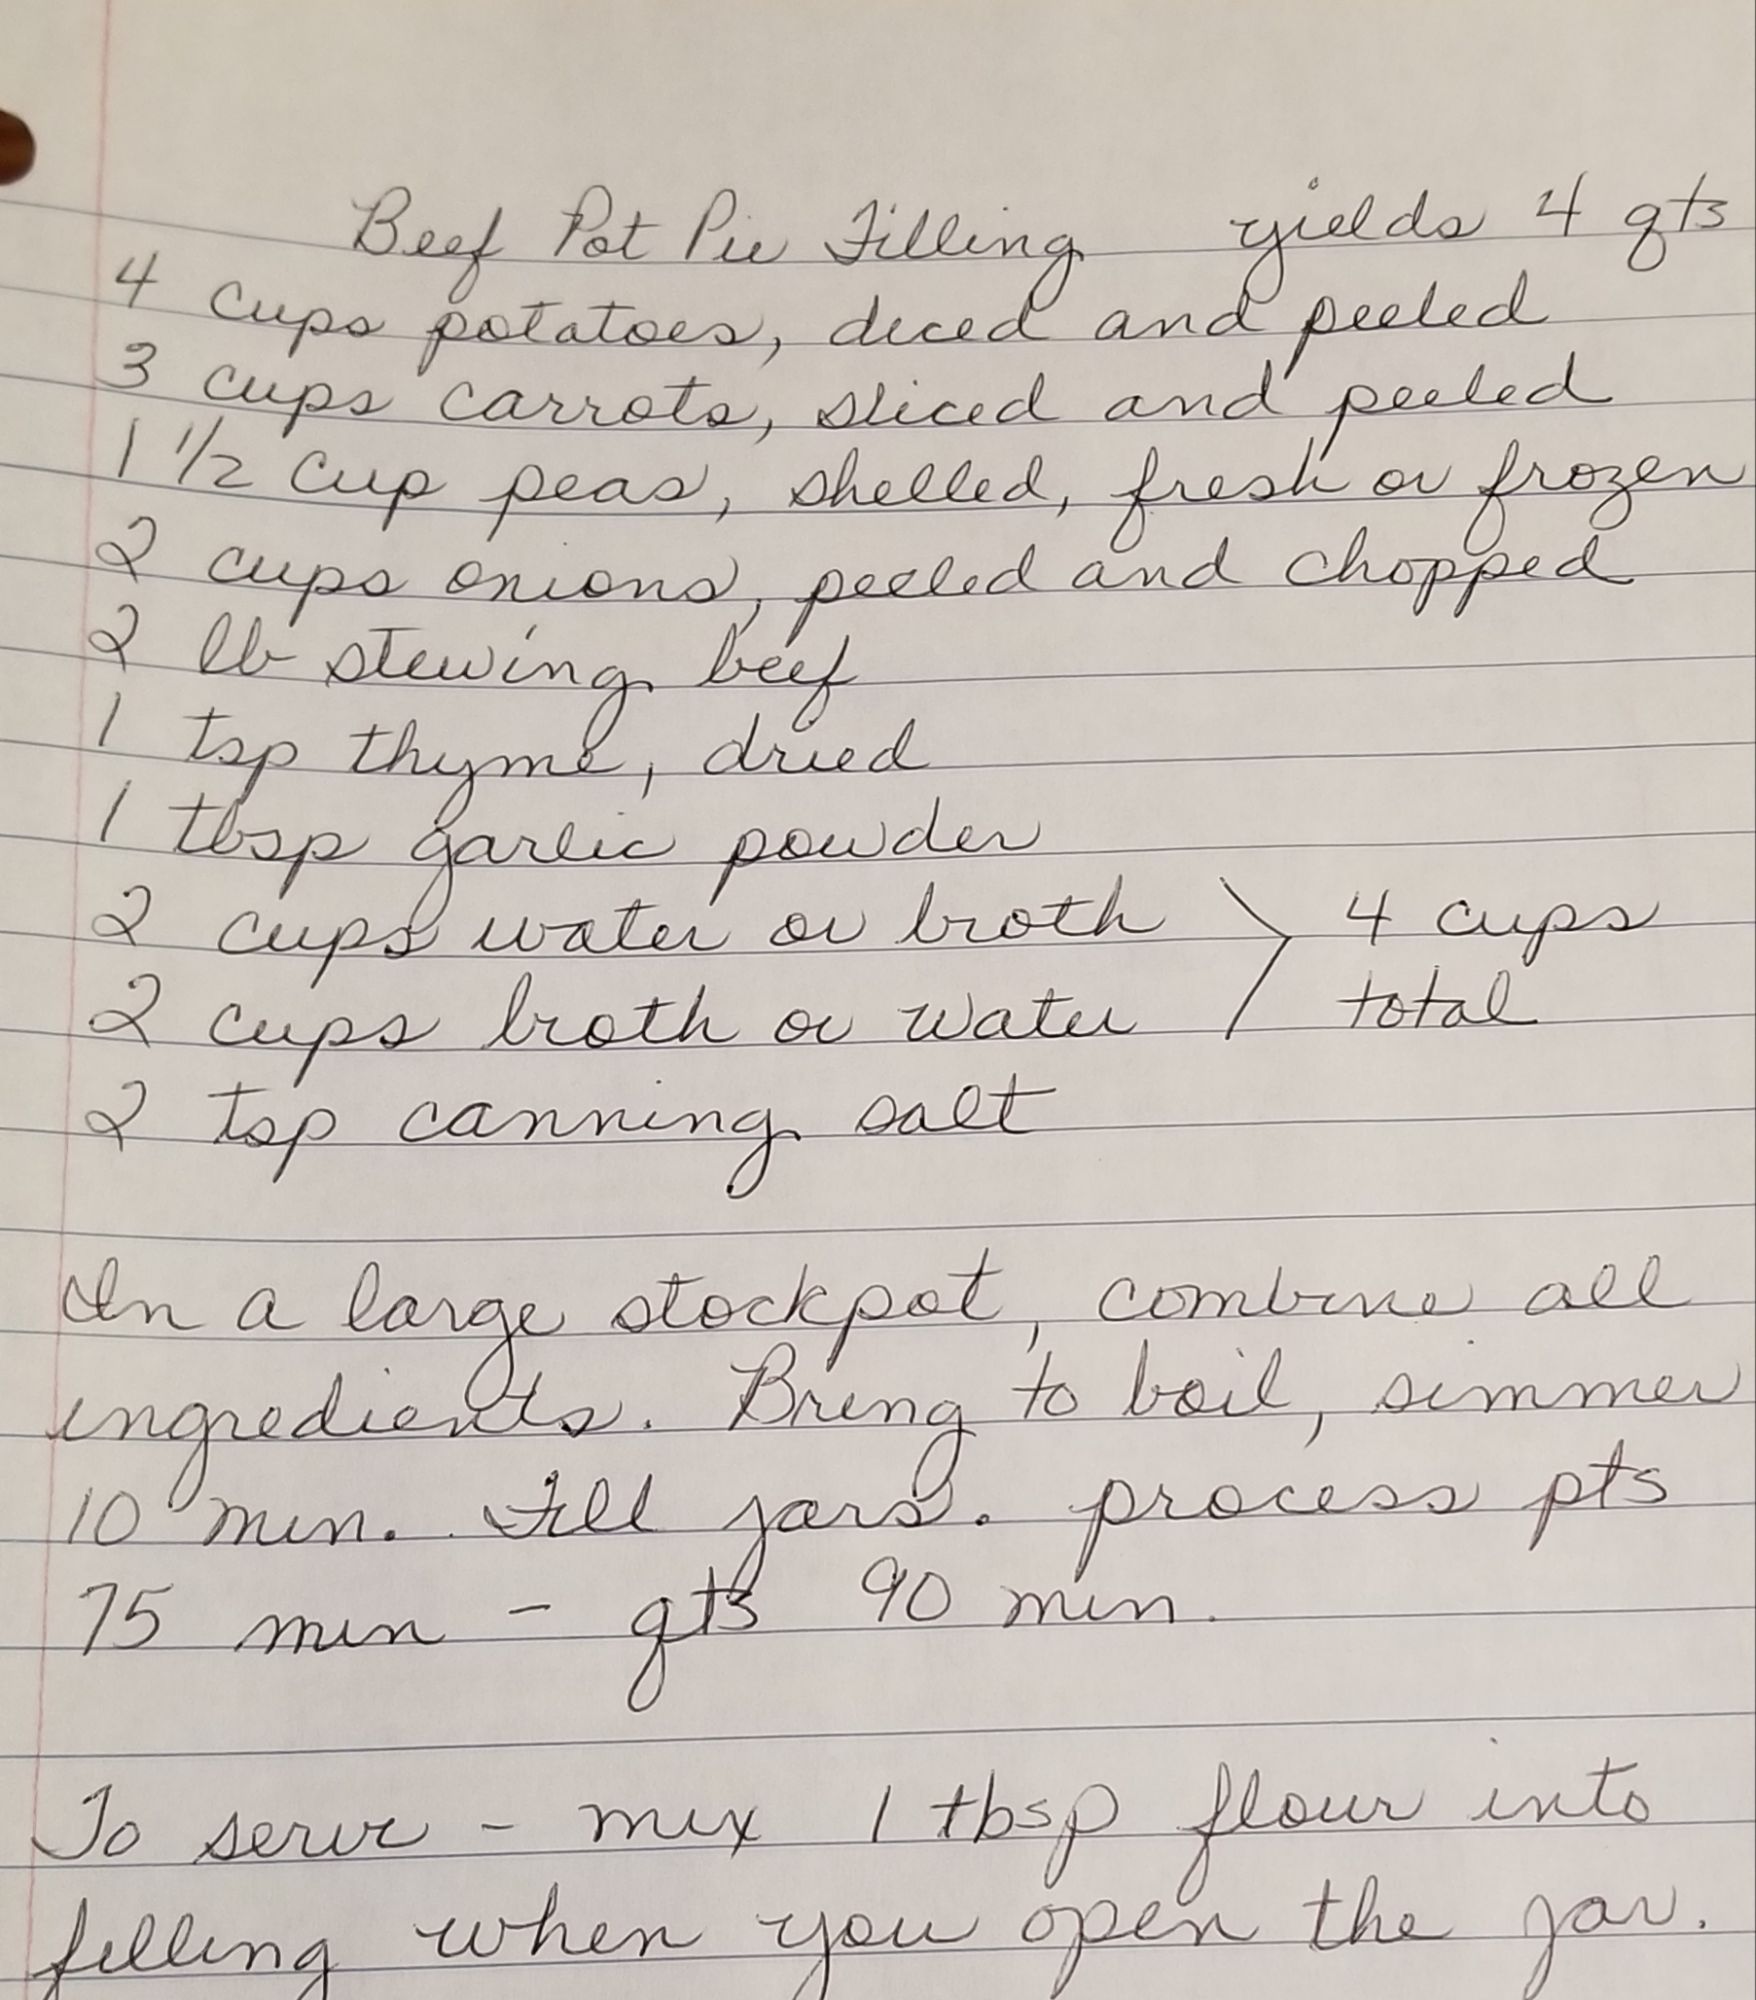 Beef Pot Pie Filling yields 4 qts
4 cups potatoes, diced and peeled
3 cups carrots, sliced and peeled
1 1/2 cup peas, shelled, fresh or frozen
2 cups onions, peeled and chopped
2 lb stewing beef
1 tsp thyme, dried
1 tbsp garlic powder
2 cups water or broth > 4 cups
2 cups broth or water total
2 tsp canning salt
In a large stockpot, combine all
ingredients. Bring to boil, simmer
10 min. Fill jars. process pts
75 min - qts 90 min.
To serve - mix 1 tbsp flour into
filling when you open the jar.